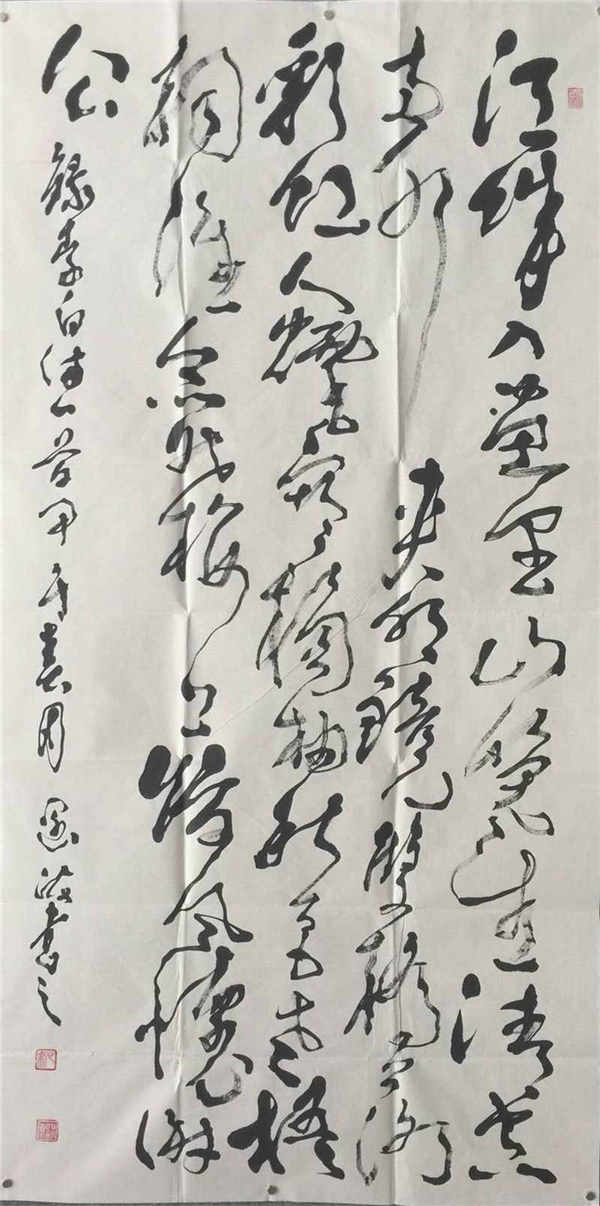 江城入画里山晚望清空
两水夹明镜双桥落
彩虹人烟寒橘柚秋色老梧
桐谁念北楼上临风怀谢
公 录李白诗一首甲午春月 书之